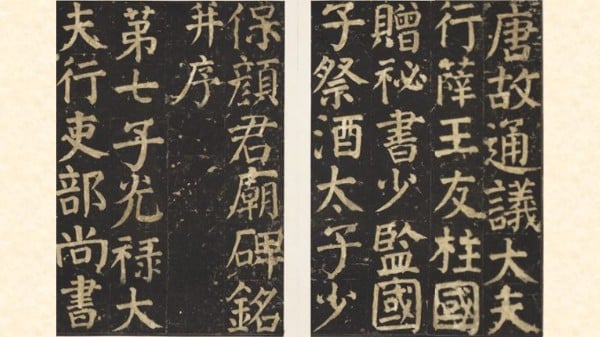 唐故通議大夫
行薛王友柱國
贈祕書少監國
子祭酒太子少
保顏君廟碑銘
并序
第七子光祿大
夫行吏部尚書